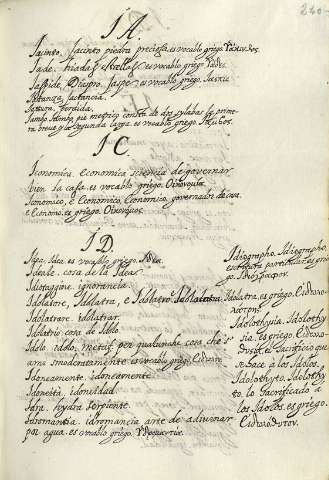 280
I A.
Jacinto, Jacinto piedra preciosa, es vocablo griego. Υάκινθος.
Jade, hiadas Estrellas es vocablo griego. Υάδες
Jaspide, Diaspro, Jaspe es vocablo griego. Ἴασπις
Jattanza, jactancia.
Jattura, perdida.
Jambo Atempo pie metrico consta de dos sylabas la prime
ra breve y la segunda larga. es vocablo griego Ἴαμβος.
I C.
Iconomica, economica sciencia de governar
bien la casa, es vocablo griego. Οἰκονομία.
Iconomico, è Economico, Economico, governador de casa
e Economo, es griego. Οἰκονόμος
I D.
Idea, Idea, es vocablo griego. Ἰδέα.
Ideale, cosa de la Idea.
Idiotaggine ignorancia.
Idolatore, Idolatra, e Idolatro Idolatra, es griego. Εἰδωλο-
Idolatrare idolatrar.
Idolatrio cosa de Idolo.
Idolo idolo, metaf. per qualunche cosa che s'
ama smoderatamente es vocablo griego. Εἴδωλον
Idoneamente idoneamente.
Idoneità, idoneidad.
Idra, hydra serpiente.
Idromantia idromancia arte de adivinar
por agua. es vocablo griego. Υδρομαντία.
Idiographo, Idiographo,
escritura particular, es grie
go. Ἰδιόγραφον.
Idolothysia, Idolothy
sia, es griego. Εἰδωλο-
θυσία, el Sacrificio que
se hace à los Idolos.
Idolothyto, Idolothy
to, lo Sacrificado à
los Idolos, es griego.
Εἰδωλόθυτον.